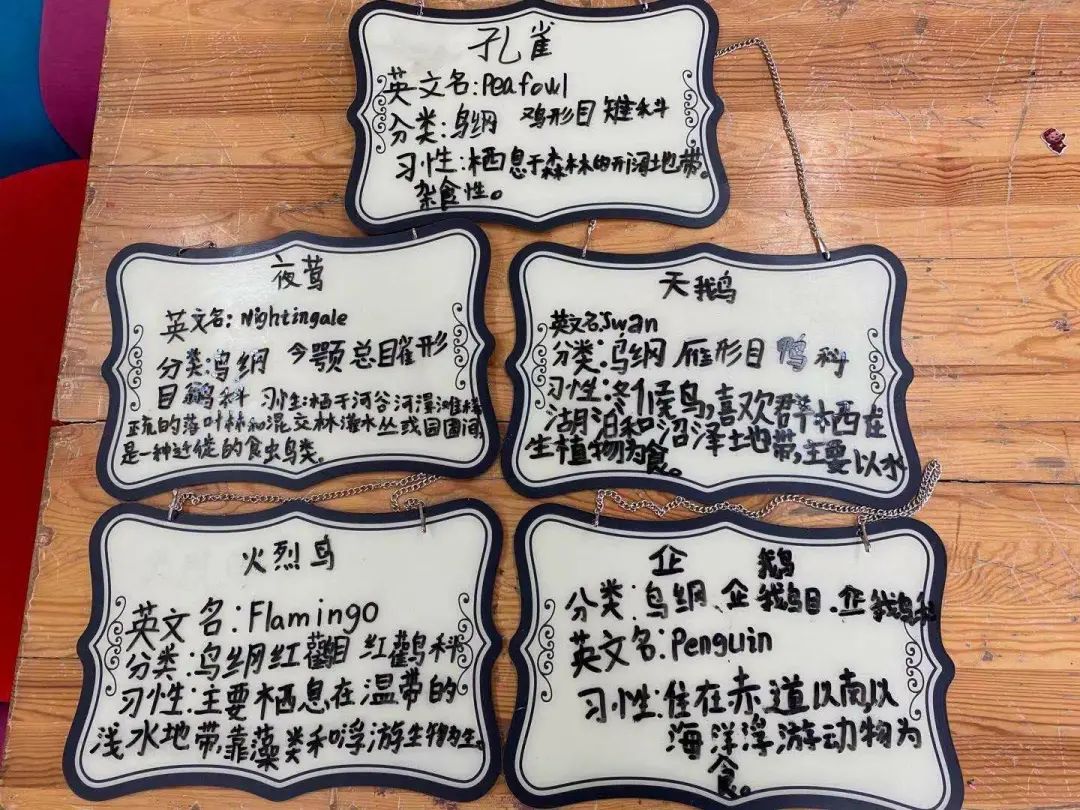 孔雀
英文名:Peafowl
分类:鸟纲 鸡形目 雉科
习性:栖息于森林的开阔地带。
杂食性。
夜莺
英文名:Nightingale
分类:鸟纲 今颚总目雀形
目鹟科 习性:栖于河谷河漫滩稀
疏的落叶林和混交林灌木丛或园圃间,
是一种迁徙的食虫鸟类。
天鹅
英文名Swan
分类:鸟纲 雁形目 鸭科
习性:冬候鸟,喜欢群栖在
湖泊和沼泽地带,主要以水
生植物为食。
火烈鸟
英文名:Flamingo
分类:鸟纲红鹳目 红鹳科
习性:主要栖息在温带的
浅水地带,靠藻类和浮游生物为生。
企 鹅
分类:鸟纲、企鹅目.企鹅科
英文名:Penguin
习性:住在赤道以南,以
海洋浮游动物为
食。